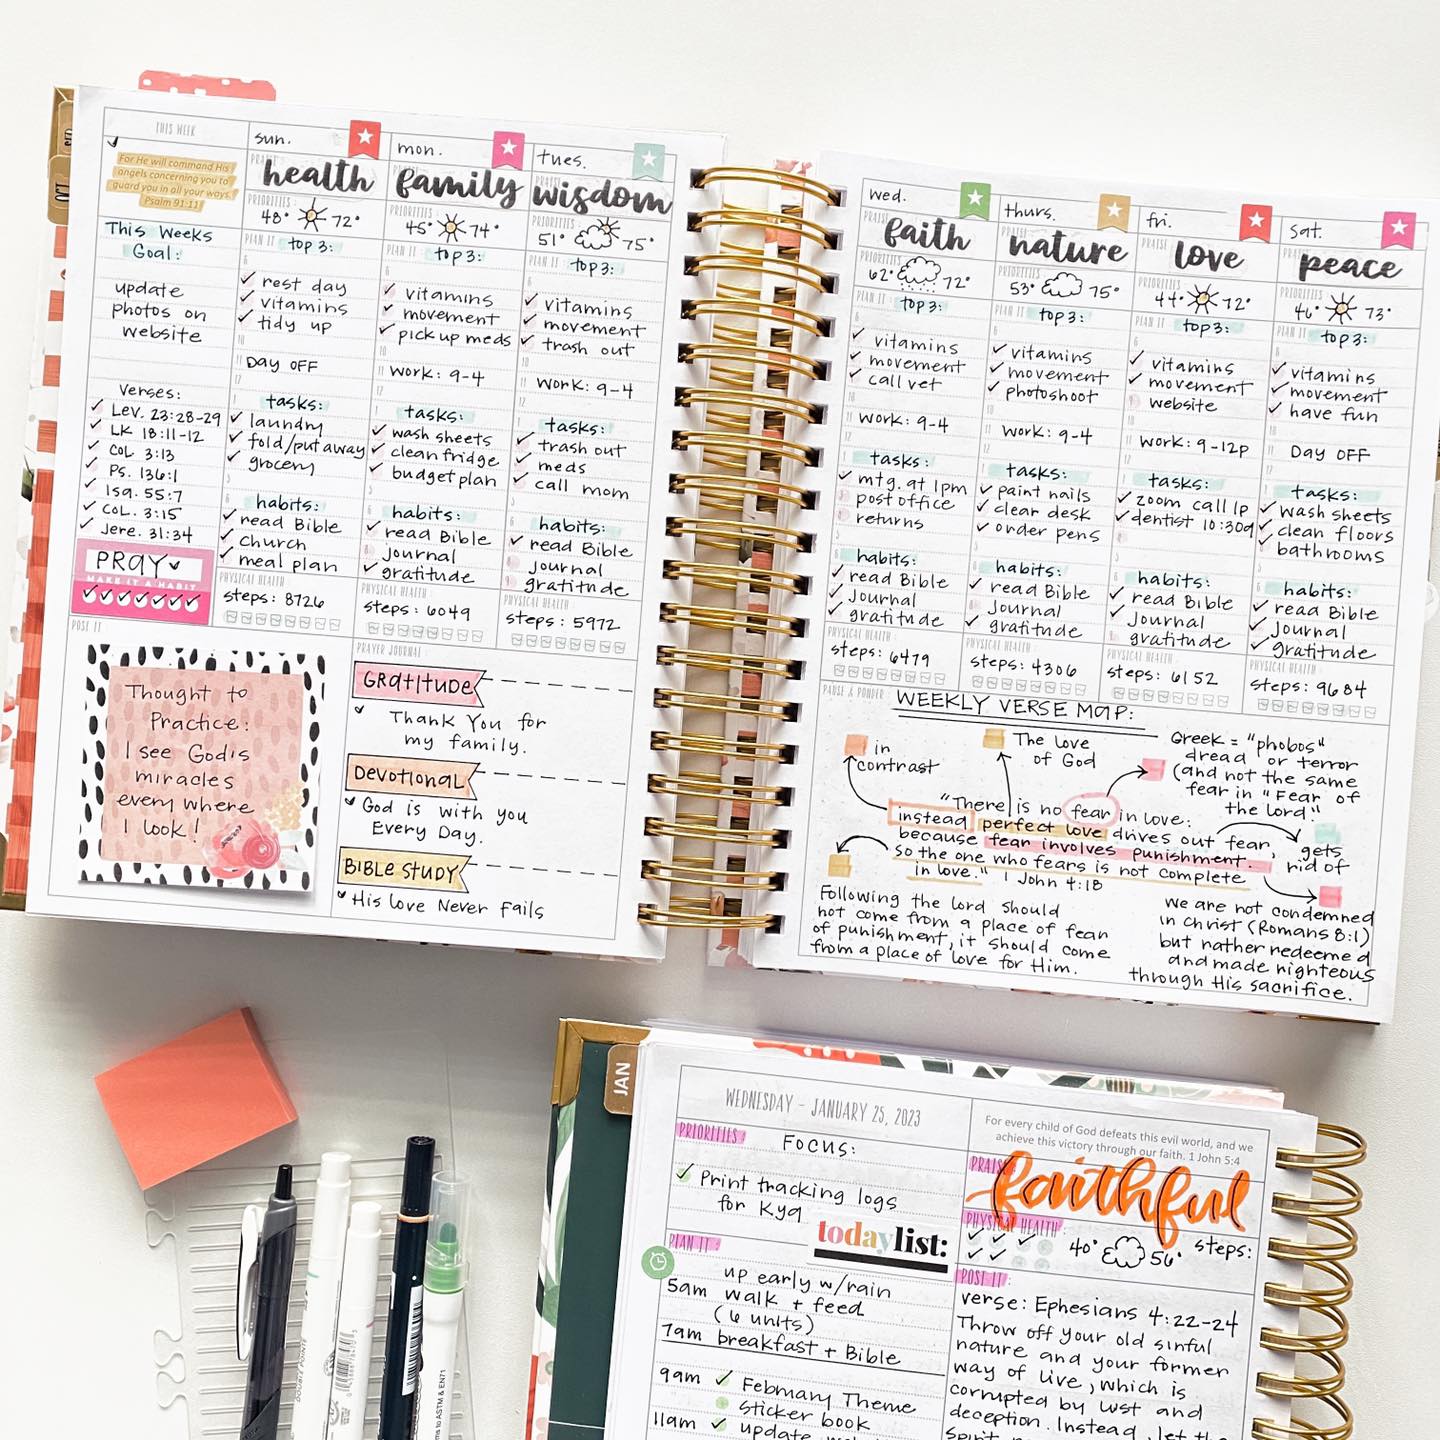 THIS WEEK
For He will command His
angels concerning you to
guard you in all your ways.
Psalm 91:11
This Weeks
Goal:
update
photos on
website
Verses:
Lev. 23:28-29
LK 18:11-12
COL 3:13
Ps. 136:1
Isa. 55:7
COL. 3:15
Jere. 31:34
PRAY
MAKE IT A HABIT
sun.
health
PRIORITIES:
48° 72°
PLAN IT
top 3:
rest day
vitamins
tidy up
Day OFF
tasks:
laundry
fold/put away
grocery
habits:
read Bible
church
meal plan
PHYSICAL HEALTH:
steps: 8726
mon.
family
PRIORITIES:
45° 74°
PLAN IT
top 3:
vitamins
movement
pick up meds
work: 9-4
tasks:
wash sheets
clean fridge
budget plan
habits:
read Bible
Journal
gratitude
PHYSICAL HEALTH:
steps: 6049
tues.
wisdom
PRIORITIES:
51° 75°
PLAN IT
top 3:
vitamins
movement
trash out
work: 9-4
tasks:
trash out
meds
call mom
habits:
read Bible
Journal
gratitude
PHYSICAL HEALTH:
steps: 5972
POST IT
Thought to
Practice:
I see God's
miracles
everywhere
I look!
PRAYER JOURNAL:
GRATITUDE
Thank You for
my family.
DEVOTIONAL
God is with you
Every Day.
BIBLE STUDY
His love Never Fails
wed.
PRAISE
faith
PRIORITIES:
62° 72°
PLAN IT
top 3:
vitamins
movement
call vet
work: 9-4
tasks:
mtg. at 1pm
post office
returns
habits:
read Bible
Journal
gratitude
PHYSICAL HEALTH:
steps: 6479
thurs.
PRAISE
nature
PRIORITIES
53° 75°
PLAN IT
top 3:
vitamins
movement
photoshoot
work: 9-4
tasks:
paint nails
clear desk
order pens
habits:
read Bible
Journal
gratitude
PHYSICAL HEALTH:
steps: 4306
fri.
PRAISE
love
PRIORITIES
44° 72°
PLAN IT
top 3:
vitamins
movement
website
work: 9-12p
tasks:
zoom call 1p
dentist 10:30a
habits:
read Bible
Journal
gratitude
PHYSICAL HEALTH:
steps: 6152
sat.
PRAISE
peace
PRIORITIES
46° 73°
PLAN IT
top 3:
vitamins
movement
have fun
Day OFF
tasks:
wash sheets
clean floors
bathrooms
habits:
read Bible
Journal
gratitude
PHYSICAL HEALTH
steps: 9684
PAUSE & PONDER:
WEEKLY VERSE MAP:
in
contrast
The love
of God
Greek = "phobos"
dread or terror
(and not the same
fear in "Fear of
the Lord."
"There is no fear in love:
instead perfect love drives out fear,
because fear involves punishment.
so the one who fears is not complete
in love." 1 John 4:18
gets
rid of
Following the Lord should
not come from a place of fear
of punishment, it should come
from a place of love for Him.
we are not condemned
in Christ (Romans 8:1)
but rather redeemed
and made righteous
through His sacrifice.
OCT
JAN
WEDNESDAY - JANUARY 25, 2023
PRIORITIES:
FOCUS:
Print tracking logs
for Kya
PLAN IT
todaylist:
up early w/rain
5am walk + feed
(6 units)
7am breakfast + Bible
9am February Theme
sticker book
11am update
For every child of God defeats this evil world, and we
achieve this victory through our faith. 1 John 5:4
PRAISE
faithful
PHYSICAL HEALTH:
40° 56° steps:
POST IT:
verse: Ephesians 4:22-24
Throw off your old sinful
nature and your former
way of live, which is
corrupted by lust and
deception. Instead, let the